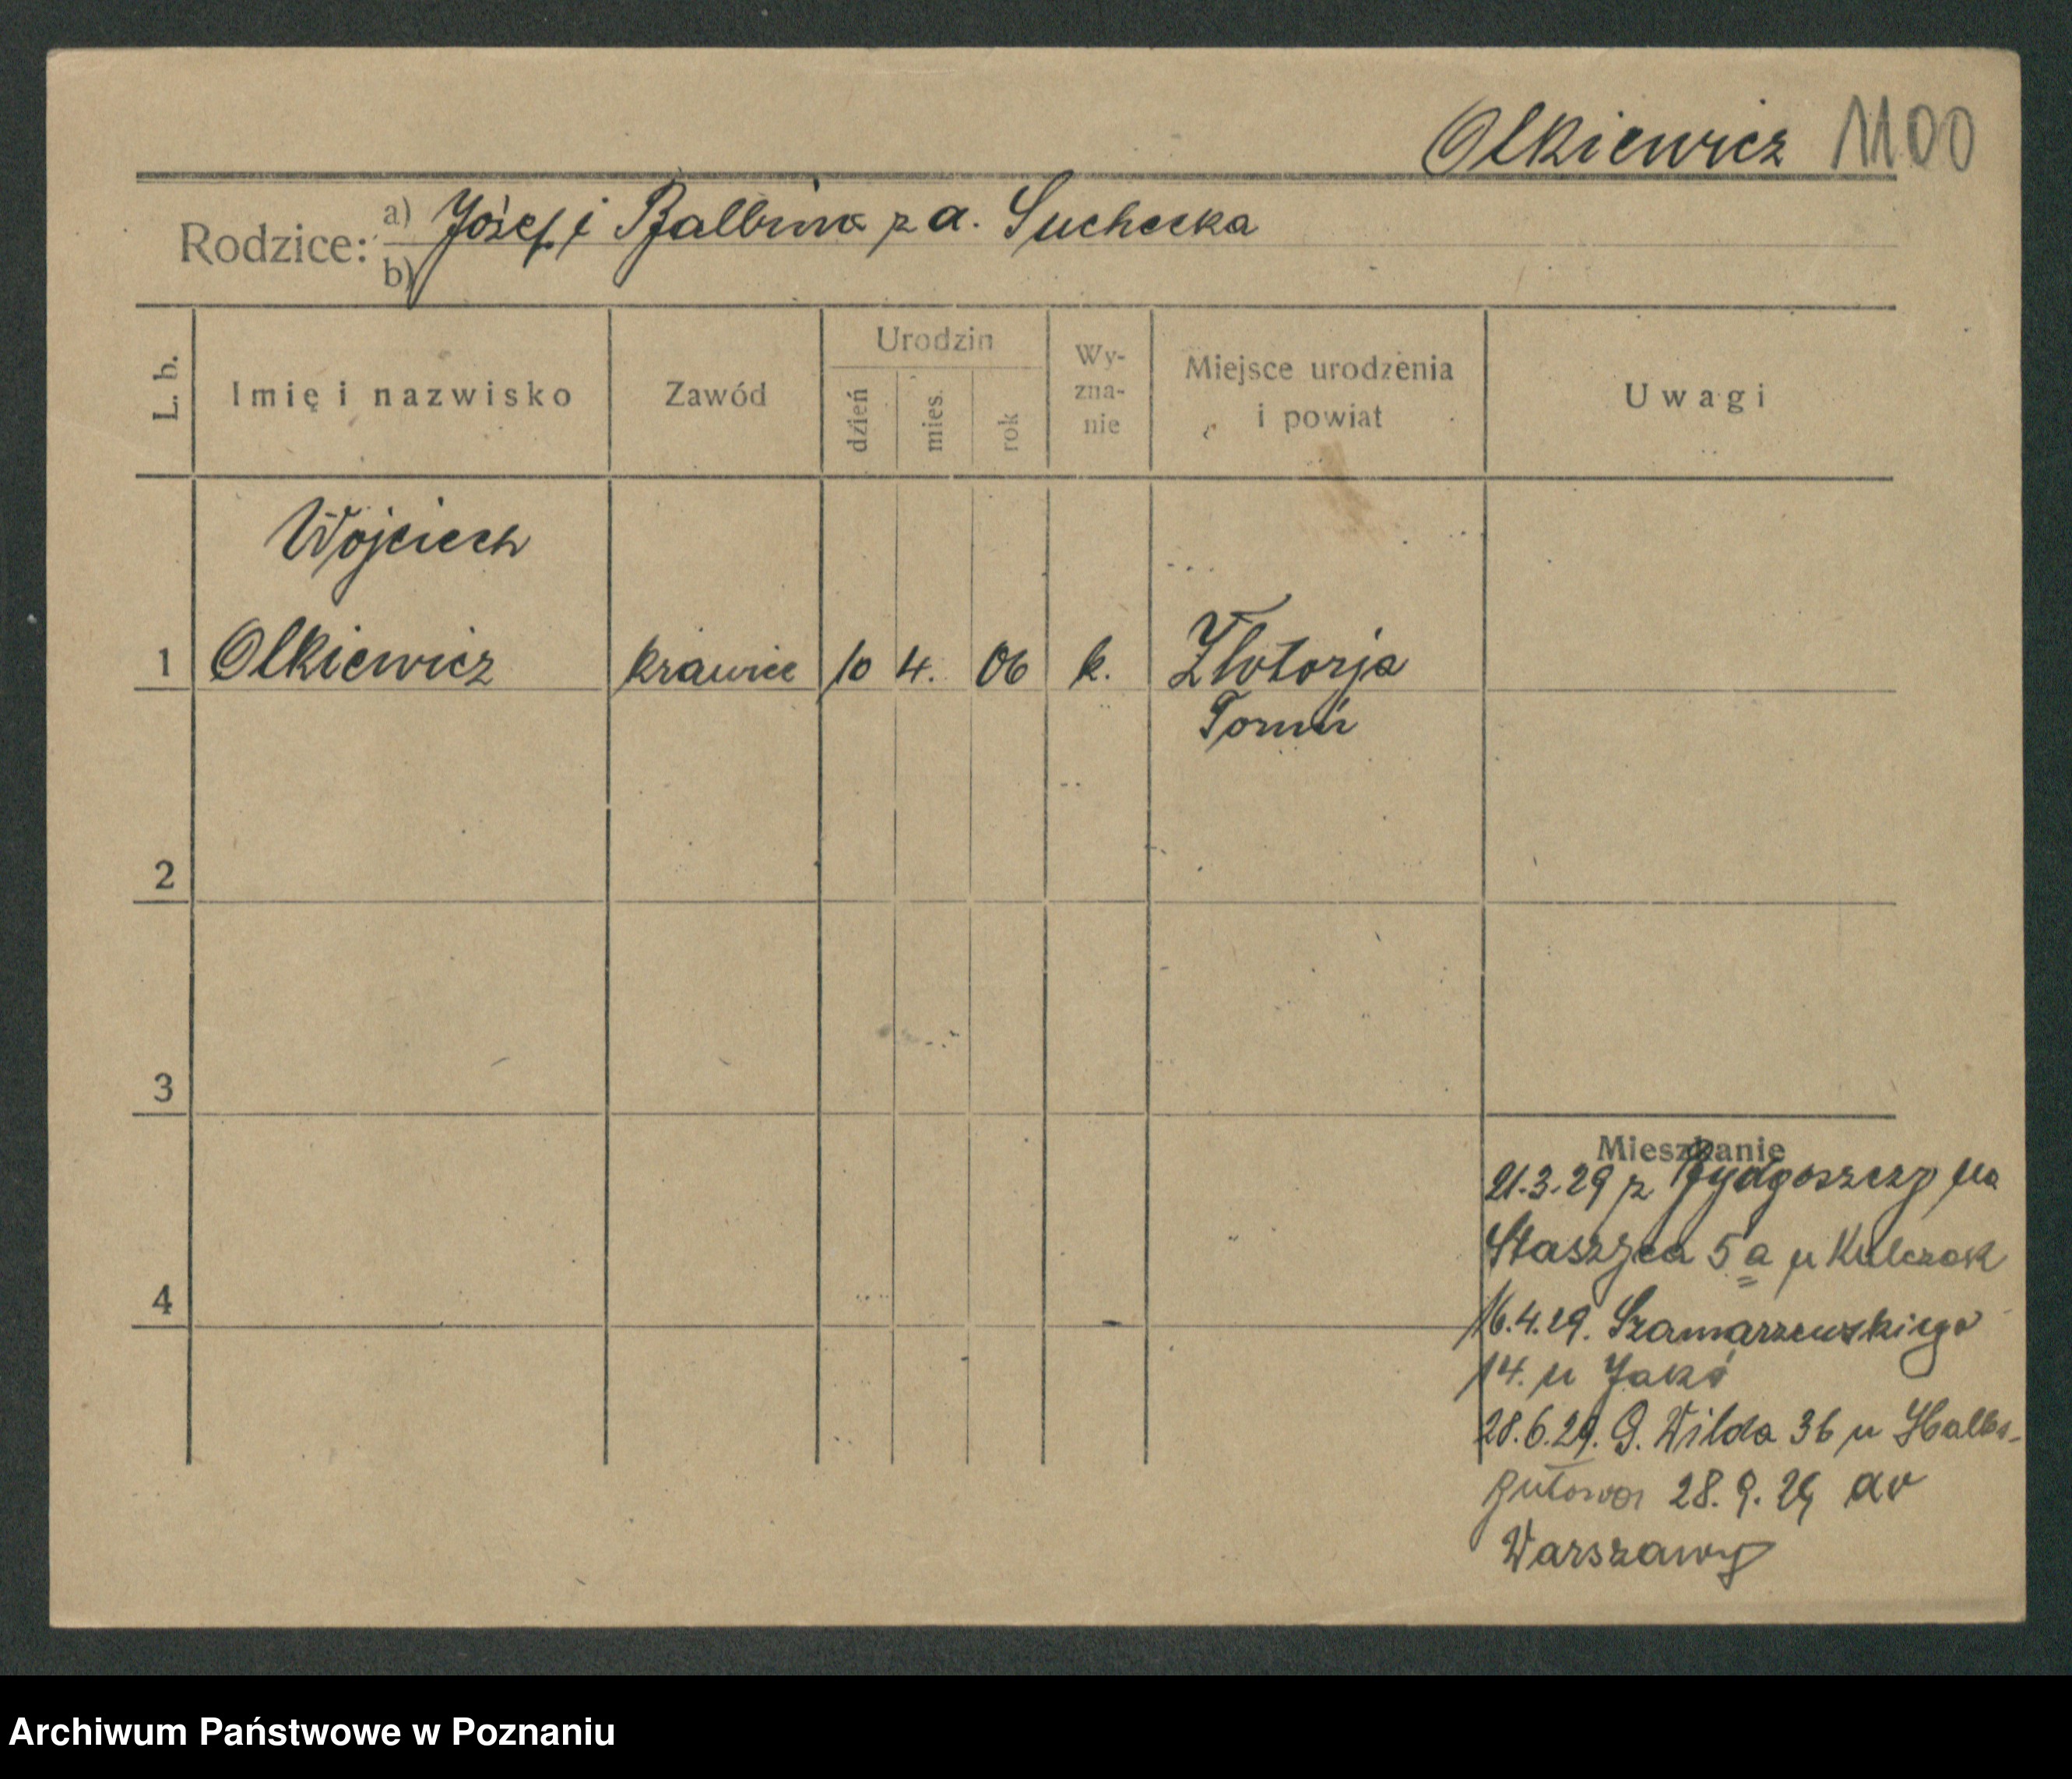 Olkiewicz 1100
Rodzice: a) Józef i Balbina z d. Suchecka
b)
L. b. Imię i nazwisko Zawód Urodzin dzień mies. rok Wy-zna-nie Miejsce urodzenia i powiat Uwagi
Wojciech
1 Olkiewicz krawiec 10 4. 06 k. Złotorja
Toruń
2
3
Mieszkanie
21.3.29 z Bydgoszczy na
Staszyca 5a u Kulczak
4
16.4.29. Szamarzewskiego
14. u
28.6.29. G. Wilda 36 u
28.9.29 do
Warszawy
Archiwum Państwowe w Poznaniu